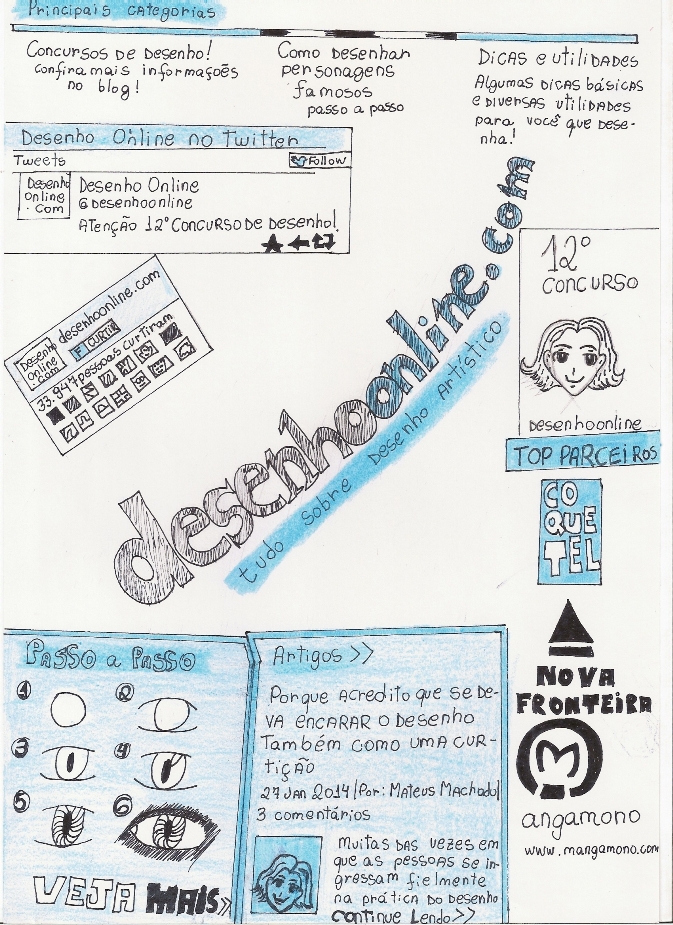 Principais categorias
Concursos de Desenho!
Confira mais informações
no blog!
Como desenhar
personagens
famosos
passo a passo
Dicas e utilidades
Algumas dicas básicas
e diversas utilidades
para você que dese-
nha!
Desenho Online no Twitter
Tweets
Follow
Desenho
Online
.com
Desenho Online
@desenhoonline
Atenção 12º Concurso de Desenho!
Desenho
Online
.com
desenhoonline.com
F CURTIR
33.947 pessoas curtiram
desenhoonline.com
tudo sobre desenho artístico
12º
CONCURSO
Desenhoonline
TOP PARCEIROS
CO
QUE
TEL
NOVA
FRONTEIRA
M
angamono
www.mangamono.com
Passo a Passo
1
2
3
4
5
6
VEJA MAIS>>
Artigos >>
Porque acredito que se de-
va encarar o desenho
também como uma cur-
tição
27 Jan 2014|Por: Mateus Machado|
3 comentários
Muitas das vezes em
que as pessoas se in-
gressam fielmente
na prática do desenho
continue Lendo>>